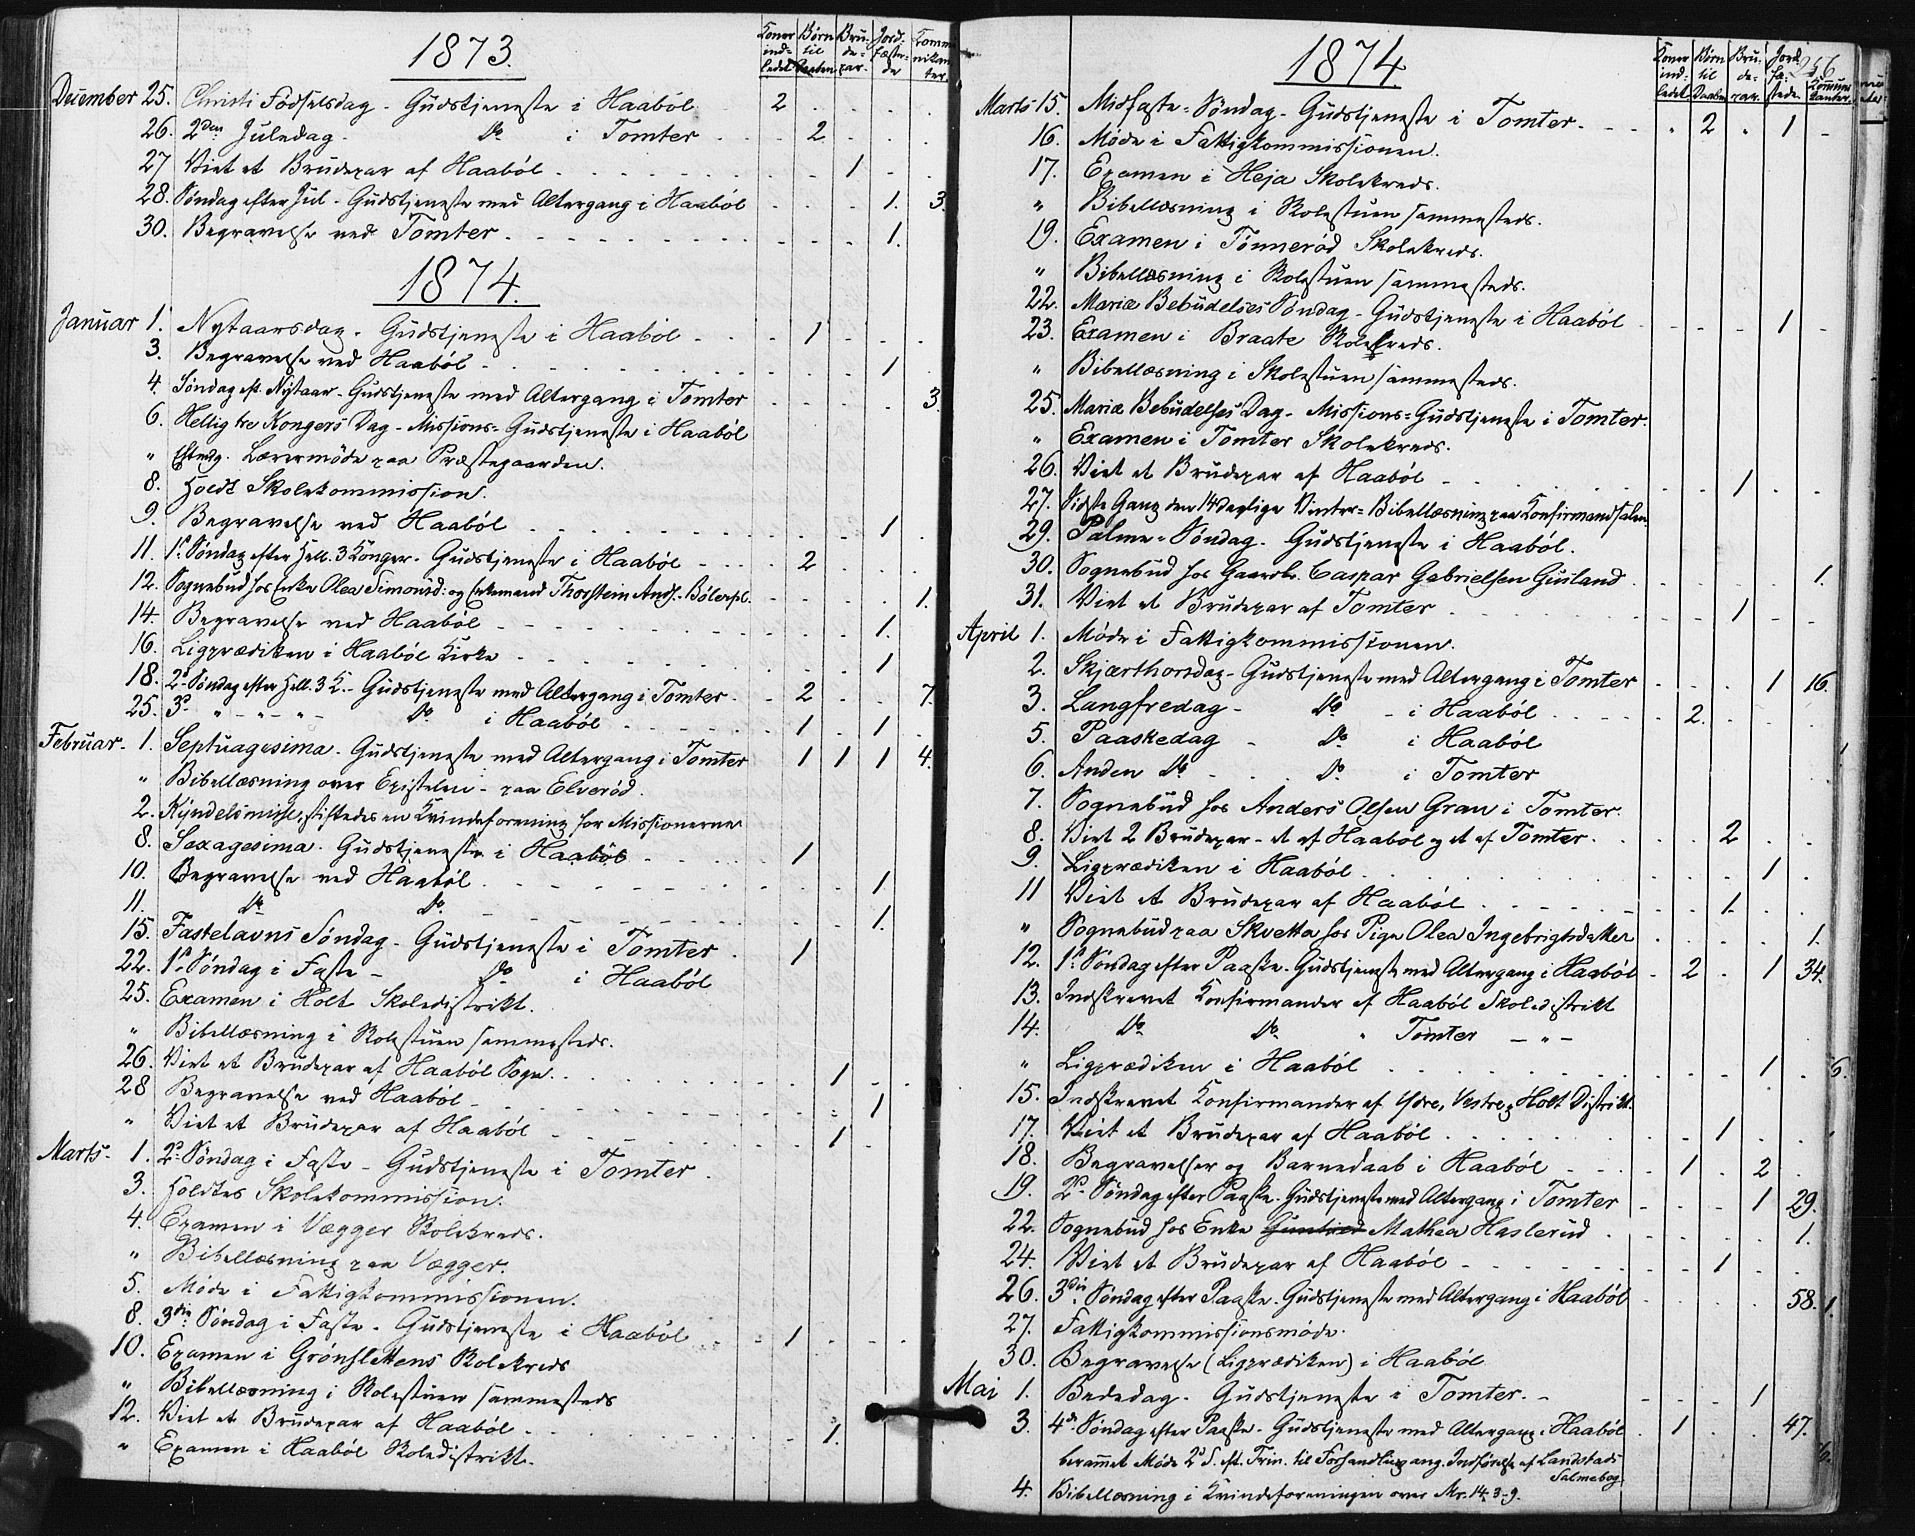 1873.
Koner ind- ledet | Børn til Daaben | Bru- de- par. | Jord- fæste- de | Kommu nikan ter.
December 25. Christi Fødselsdag - Gudstjeneste i Haabøl 2 . . . .
26. 2den Juledag. Do i Tomter . . 2 . . .
27 Viet et Brudepar af Haabøl . . . 1 . .
28. Søndag efter Jul - Gudstjeneste med Altergang i Haabøl - - - 1. 3.
30. Begravelse ved Tomter. - - - 1.
1874.
Januar 1. Nytaarsdag. Gudstjeneste i Haabøl - - 1 - - -
3. Begravelse ved Haabøl - - - 1 -
4. Søndag eft. Nytaar - Gudstjeneste med Altergang i Tomter - - - - 3.
6. Hellig tre Kongers Dag - Missions = Gudstjeneste i Haabøl
" Eftmdg. Lærermøde paa Præstegaarden.
8. Holdt Skolekommission.
9. Begravelse ved Haabøl - - - 1 -
11. 1ste Søndag efter Hell. 3 Konger - Gudstjeneste i Haabøl - - 2 . . .
12. Sognebud hos Enke Olea Simonsd: og Enkemand Thorstein Ands. Bølerpl. - - - 1.
14. Begravelse ved Haabøl - - - 1.
16. Ligprædiken i Haabøl Kirke - - - 1
18. 2den Søndag efter Hell. 3 K. - Gudstjeneste med Altergang i Tomter - - 2 . . 7.
25. 3die " - " - " - Do i Haabøl - - 1 . 1 .
Februar - 1. Septuagesima - Gudstjeneste med Altergang i Tomter 1 1 1 4.
" Bibellæsning over Epistelen - paa Elverød.
2. Kyndelsmisse, stiftedes en Kvindeforening for Missionerne
8. Sexagesima - Gudstjeneste i Haabøl - - 1
10. Begravelse ved Haabøl. - - - 1
11. Do Do - - - 1.
15. Fastelavns Søndag - Gudstjeneste i Tomter . 1
22. 1ste Søndag i Faste - Do i Haabøl
25. Examen i Holt Skoledistrikt.
" Bibellæsning i Skolestuen sammesteds.
26. Viet et Brudepar af Haabøl Sogn. . . . 1 . .
28 Begravelse ved Haabøl - - - 1
" Viet et Brudepar af Haabøl - - - 1 -
Marts - 1. 2den Søndag i Faste - Gudstjeneste i Tomter .
3. Holdtes Skolekommission.
4. Examen i Vægger Skolekreds.
" Bibellæsning paa Vægger.
5. Møde i Fattigkommissionen.
8. 3die Søndag i Faste - Gudstjeneste i Haabøl - - 1 . . .
10. Examen i Grønslettens Skolekreds
" Bibellæsning i Skolestuen sammesteds
12. Viet et Brudepar af Haabøl - - - 1.
" Examen i Haabøl Skoledistrikt.
1874.
Koner ind- ledet | Børn til Daaben | Bru- de- par. | Jord fæ- stede | Kommuni kanter.
Marts 15. Midfaste = Søndag - Gudstjeneste i Tomter. - - " 2 " 1 -
16. Møde i Fattigkommissionen.
17. Examen i Heja Skolekreds.
" Bibellæsning i Skolestuen sammesteds.
19. Examen i Tønnerød Skolekreds.
" Bibellæsning i Skolestuen sammesteds.
22. Mariæ Bebudelses Søndag - Gudstjeneste i Haabøl - - - 1 -
23. Examen i Braate Skolekreds.
" Bibellæsning i Skolestuen sammesteds.
25. Mariæ Bebudelses Dag - Missions = Gudstjeneste i Tomter.
" Examen i Tomter Skolekreds.
26. Viet et Brudepar af Haabøl - - - 1 . .
27. Sidste Gang den 14daglige Vinter = Bibellæsning paa Konfirmandsalen
29. Palme = Søndag. Gudstjeneste i Haabøl.
30. Sognebud hos Gaardbr. Caspar Gabrielsen Gusland . . . . 1.
31. Viet et Brudepar af Tomter - - - 1 . .
April 1. Møde i Fattigkommissionen.
2. Skjærthorsdag - Gudstjeneste med Altergang i Tomter - - - 1 16.
3. Langfredag - Do - i Haabøl . . . 2.
5. Paaskedag - Do i Haabøl
6. Anden Do - Do i Tomter
7. Sognebud hos Anders Olsen Gran i Tomter.
8. Viet 2 Brudepar - et af Haabøl og et af Tomter. . . . 2 . .
9. Ligprædiken i Haabøl . . . 1 .
11 Viet et Brudepar af Haabøl . . . 1. . .
" Sognebud paa Skvetta hos Pige Olea Ingebrigtsdatter . . . 1.
12. 1ste Søndag efter Paaske. Gudstjeneste med Altergang i Haabøl - 2 . 1 34.
13. Indskrevet Konfirmander af Haabøl Skoledistrikt
14. Do Do " Tomter - " -
" Ligprædiken i Haabøl . . . 1 .
15. Indskrevet Konfirmander af Ydre, Vestre og Holt Distrikt.
17. Viet et Brudepar af Haabøl . . . 1 . .
18. Begravelser og Barnedaab i Haabøl - - - 1 . 2 .
19. 2den Søndag efter Paaske. Gudstjeneste med Altergang i Tomter - - - 1 29.
22. Sognebud hos Enke Mathea Haslerud . . . . 1.
24. Viet et Brudepar af Haabøl - - - 1 . .
26. 3die Søndag efter Paaske. Gudstjeneste med Altergang i Haabøl . . . . 58.
27. Fattigkommissionsmøde.
30. Begravelse (Ligprædiken) i Haabøl
Mai 1. Bededag. Gudstjeneste i Tomter. - - - 1
3. 4de Søndag efter Paaske - Gudstjeneste med Altergang i Haabøl . 1 . . 47.
berammet Møde 2 S. eft. Trin. til Forhandling ang. Indførelse af Landstads Salmebog.
4. Bibellæsning i Kvindeforeningen over Mr. 14, 3-9.